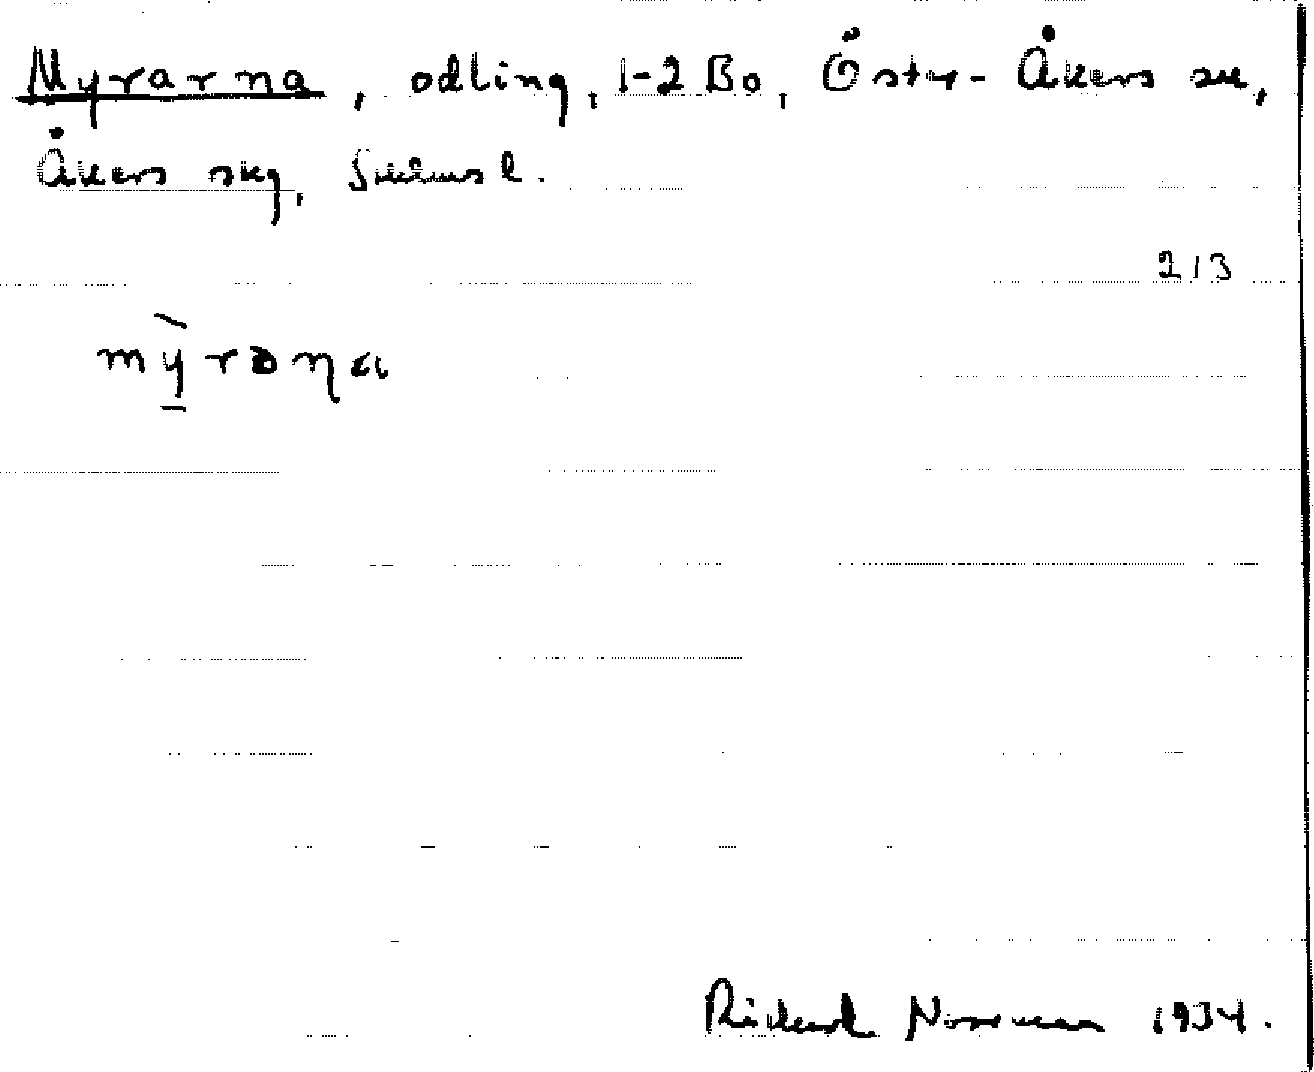 Myrarna, odling, 1-2 Bo, Öster-Åkers sn,
Åkers skg, Sthms l.
213
mỳ̱rəɳa
Rickard Norrman 1934.